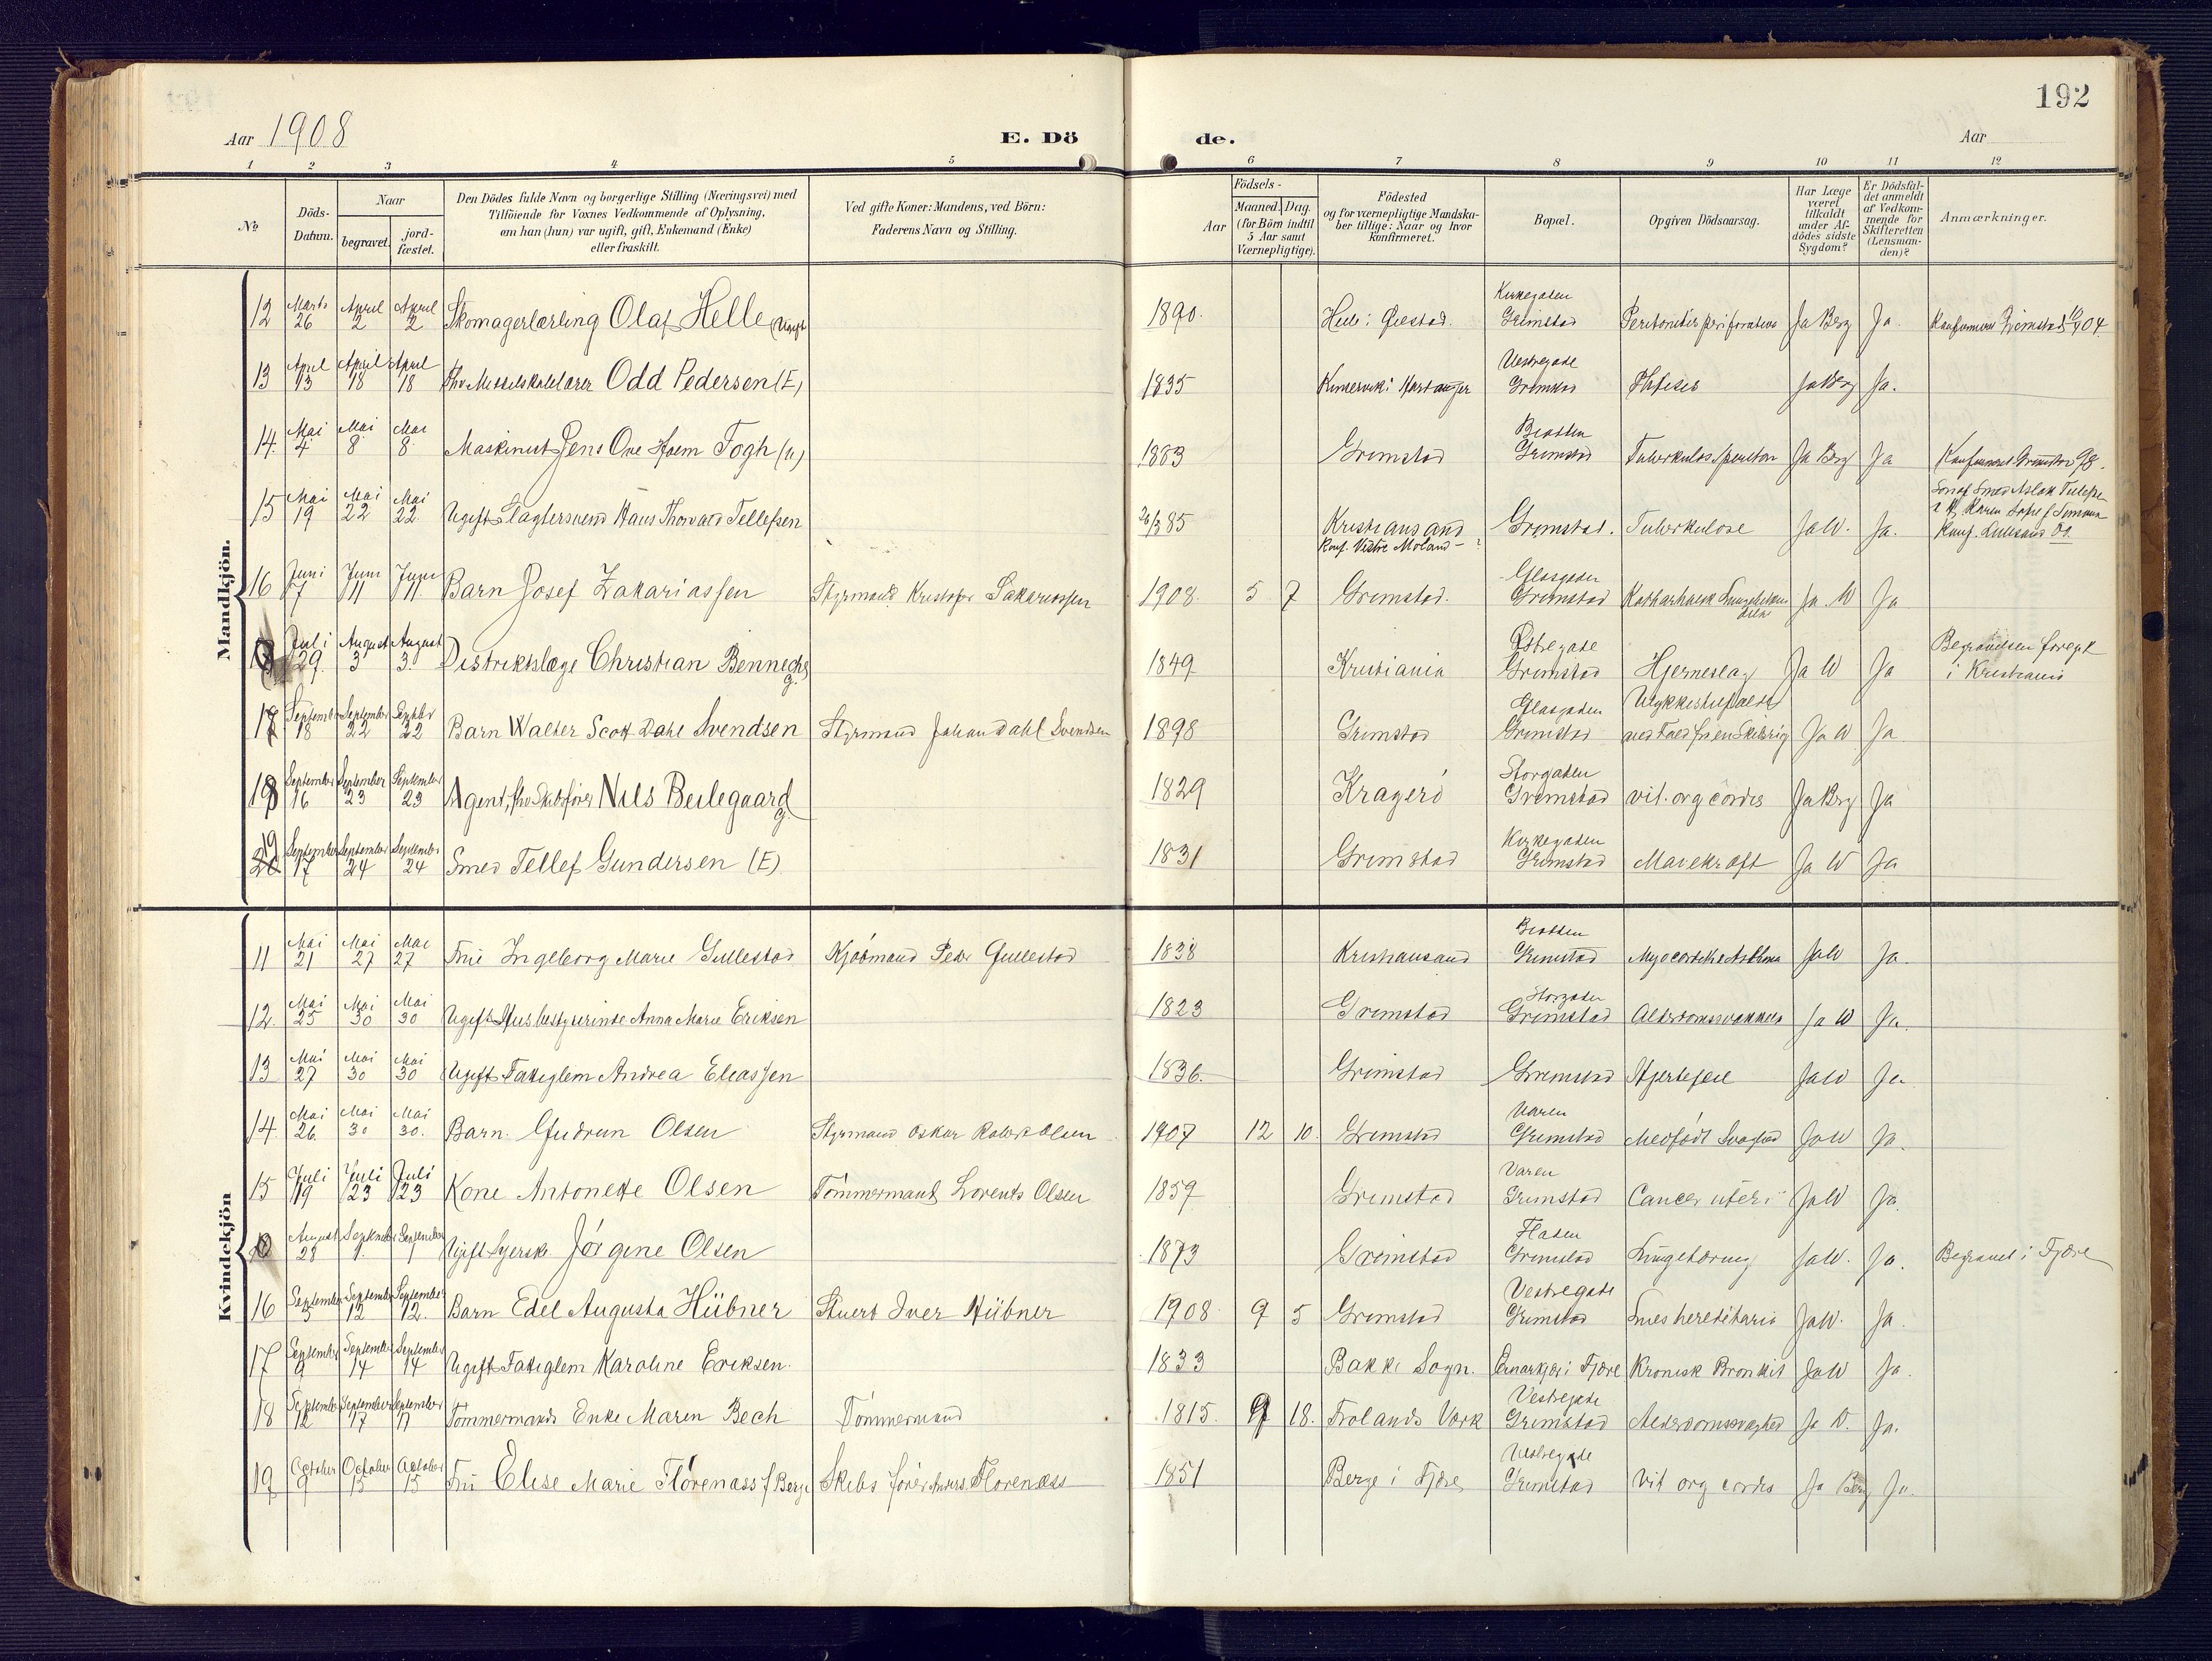 192
Aar 1908
E. Dö de.
Aar
1 2 3 4 5 6 7 8 9 10 11 12
No
Döds-
Datum.
Naar
begravet.
jord-
fæstet.
Den Dödes fulde Navn og borgerlige Stilling (Næringsvei) med
Tilföiende for Voxnes Vedkommende af Oplysning,
om han (hun) var ugift, gift, Enkemand (Enke)
eller fraskilt.
Ved gifte Koner: Mandens, ved Börn:
Faderens Navn og Stilling.
Födsels-
Aar
Maaned. Dag.
(for Börn indtil
5 Aar samt
Værnepligtige).
Födested
og for værnepligtige Mandska-
ber tillige: Naar og hvor
Konfirmeret.
Bopæl.
Opgiven Dödsaarsag.
Har Læge
været
tilkaldt
under Af-
dödes sidste
Sygdom?
Er Dödsfal-
det anmeldt
af Vedkom-
mende for
Skifteretten
(Lensman-
den)?
Anmærkninger.
Mandkjön.
Kirkegaden
12 Marts 26 April 2 April 2 Skomagerlærling Olaf Helle (Ugift 1890. Grimstad Ja Berg Ja.
Vestregade
13 April 13 April 18 April 18 Odd Pedersen (E) 1835 Grimstad Ja Berg Ja.
14. Mai 4 Mai 8. Mai 8. Maskinist Jens Ove Fogh (u) 1883 Grimstad Grimstad Ja Berg Ja
15 Mai 19 Mai 22 Mai 22. Ugift Slagtersvend Hans Thorvald Tellefsen 26/3 85 Kristiansand Grimstad. Tuberkulose Ja W. Ja.
Konf. Vestre Moland - ?
Glasgaden
16 Juni 7 Juni 11 Juni 11. Barn Josef Zakariassen Styrmand Kristofer Sakariassen 1908. 5 7 Grimstad. Grimstad Ja. W Ja
Østregade
Juli 29. August 3 August 3. Distriktslæge Christian Benneche g. 1849 Kristiania Grimstad Hjerneslag Ja W Ja Begravelsen foregik
i Kristiania
Glasgaden
17 September 18 September 22 Septbr 22 Barn Walter Scott Dahl Svendsen Styrmand Johan Dahl Svendsen 1898 Grimstad Grimstad Ja W Ja
Storgaden
18 September 16 September 23 September 23 Agent, fhv Skibsfører Nils Beilegaard g. 1829 Kragerö Grimstad vit. org cordis Ja Berg Ja
Kirkegaden
19 September 17 September 24 September 24 Smed Tellef Gundersen (E) 1831 Grimstad Grimstad Mavekræft Ja W Ja
Kvindekjön
11 Mai 21 Mai 27 Mai 27 Frue Ingeborg Marie Gullestad Kjøbmand Peder Gullestad 1838 Kristiansand Grimstad Ja W Ja.
Storgaden
12. Mai 25 Mai 30 Mai 30 Ugift Husbestyrerinde Anna Marie Eriksen 1823 Grimstad Grimstad Ja W Ja.
13 Mai 27 Mai 30 Mai 30 Ugift Fattiglem Andrea Eliassen 1836. Grimstad Grimstad Hjertefeil Ja W Ja
Varen
14. Mai 26. Mai 30 Mai 30. Barn. Gudrun Olsen Styrmand Oskar Robert Olsen 1907 12 10. Grimstad Grimstad Medfødt Svaghed Ja W Ja.
Varen
15 Juli 19 Juli 23 Juli 23 Kone Antonette Olsen Tømmermand Lorents Olsen 1859 Grimstad Grimstad Cancer uteri Ja W Ja.
Fladen
August 28 September 1. September 1 Ugift Syerske Jörgine Olsen 1873 Grimstad Grimstad Lungetæring Ja W. Ja. Begravet i Fjære
Vestregade
16 September 5 September 12 September 12. Barn Edel Augusta Hübner Stuert Iver Hübner 1908. 9 5 Grimstad Grimstad Lues hereditaria Ja W. Ja.
17 September 9 September 14 September 14 Ugift Fattiglem Karoline Eriksen. 1833 Bakke Sogn. i Fjære Kronisk Bronkit Ja W Ja.
Vestregade
18 September 12 September 17 September 17 Tömmermands Enke Maren Bech Tömmermand 1815. 9 18. Frolands Værk Grimstad Alderdomssvaghed Ja W. Ja.
Vestregade
19 October 9 October 15 October 15 Fru Elise Marie Florenæss f. Berge Skibsförer Anders Florenæss 1851 Berge i Fjære Grimstad Vit org cordis Ja Berg Ja.